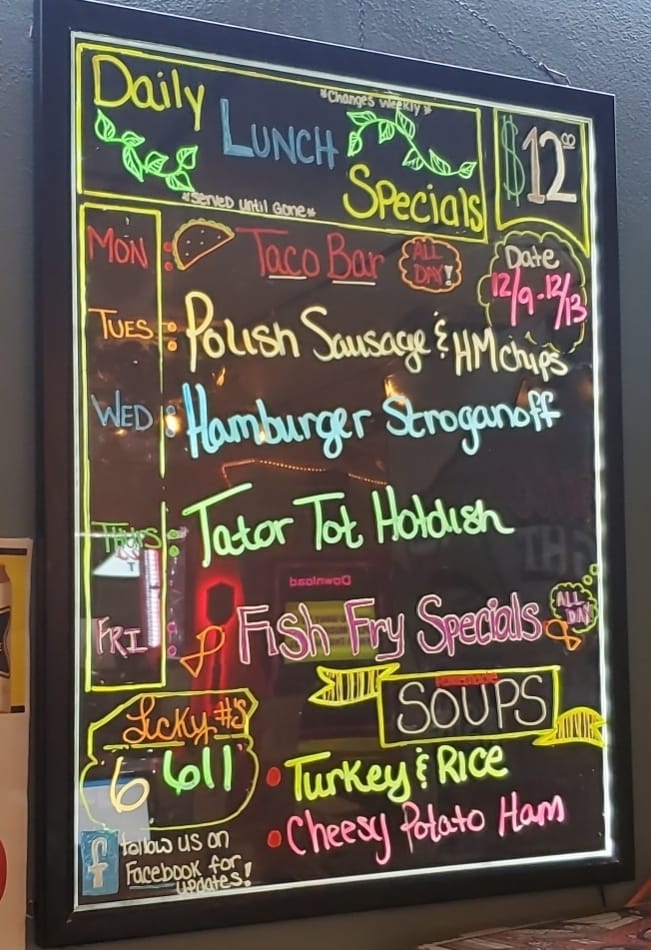 Daily
*Changes weekly*
LUNCH
Specials
*Served Until Gone*
$12.00
MON : Taco Bar ALL DAY!
Date
12/9-12/13
TUES : Polish Sausage & HM chips
WED : Hamburger Stroganoff
THURS : Tator Tot Hotdish
Download
FRI : Fish Fry Specials ALL DAY
Homemade
SOUPS
Lucky #'s
6 611
• Turkey & Rice
• Cheesy Potato Ham
f follow us on
Facebook for
updates!